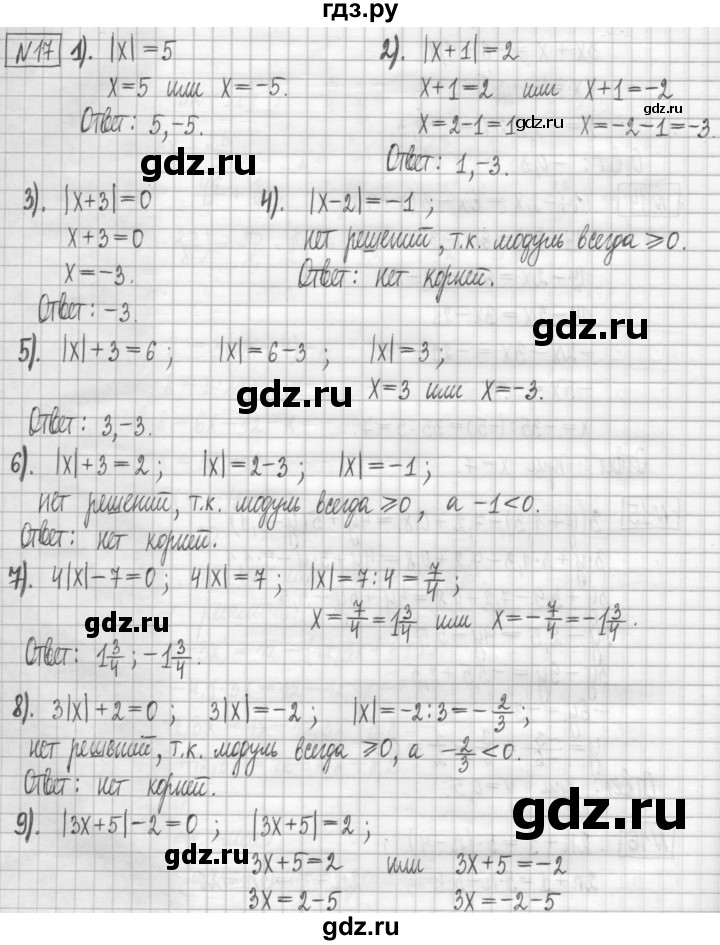 гдз.ру
№17 1). |x|=5 2). |x+1|=2
x=5 или x=-5. x+1=2 или x+1=-2
gdz.ru
Ответ: 5,-5. x=2-1=1 x=-2-1=-3.
gdz.ru gdz.ru
gdz.ru
Ответ: 1,-3.
3). |x+3|=0 4). |x-2|=-1 ;
x+3=0 нет решений, т.к. модуль всегда ≥0.
x=-3. Ответ: нет корней.
Ответ: -3.
gdz.ru
5). |x|+3=6 ; |x|=6-3 ; |x|=3 ;
gdz.ru
x=3 или x=-3.
Ответ: 3,-3.
6). |x|+3=2 ; |x|=2-3 ; |x|=-1 ;
нет решений, т.к. модуль всегда ≥0, а -1<0.
Ответ: нет корней.
7). 4|x|-7=0 ; 4|x|=7 ; |x|=7:4=7/4 ;
gdz.ru
x=7/4=1 3/4 или x=-7/4=-1 3/4.
Ответ: 1 3/4 ; -1 3/4.
8). 3|x|+2=0 ; 3|x|=-2 ; |x|=-2:3=-2/3 ;
нет решений, т.к. модуль всегда ≥0, а -2/3<0.
Ответ: нет корней.
gdz.ru
9). |3x+5|-2=0 ; |3x+5|=2 ;
gdz.ru
3x+5=2 или 3x+5=-2
3x=2-5 3x=-2-5
gdz.ru